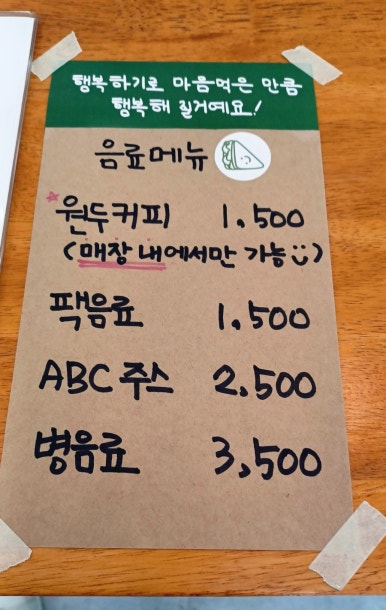 행복하기로 마음먹은 만큼
행복해 질거예요!
음료메뉴
*원두커피 1,500
(매장 내에서만 가능:))
팩음료 1,500
ABC 주스 2,500
병음료 3,500